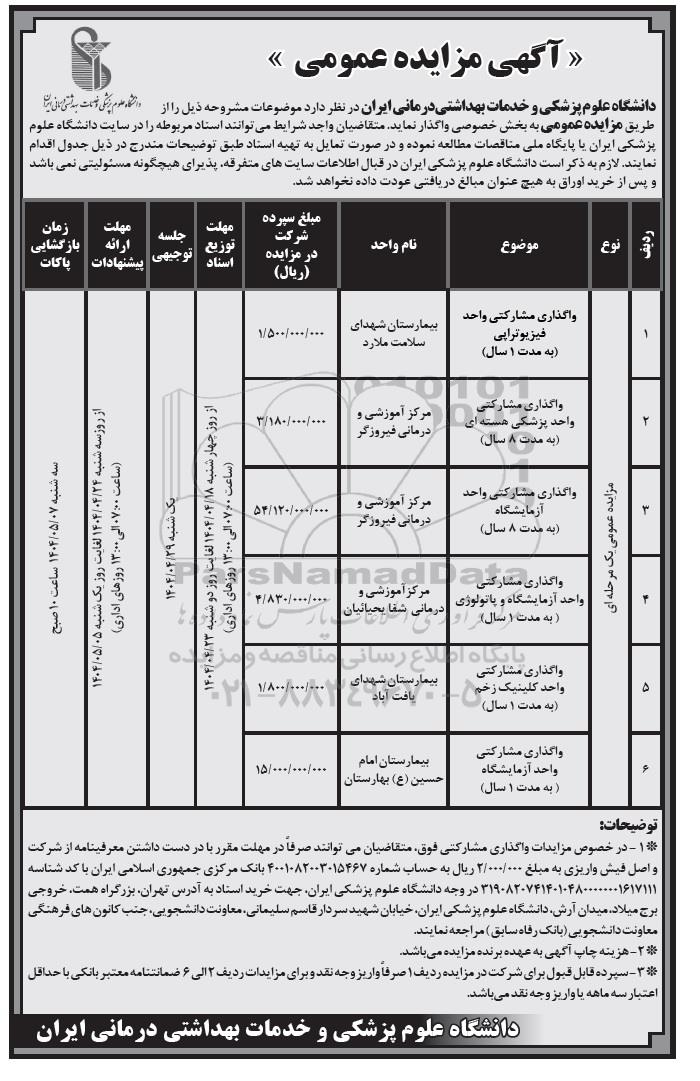 « آگهی مزایده عمومی »
دانشگاه علوم پزشکی و خدمات بهداشتی درمانی ایران
دانشگاه علوم پزشکی و خدمات بهداشتی درمانی ایران در نظر دارد موضوعات مشروحه ذیل را از
طریق مزایده عمومی به بخش خصوصی واگذار نماید. متقاضیان واجد شرایط می‌توانند اسناد مربوطه را در سایت دانشگاه علوم
پزشکی ایران یا پایگاه ملی مناقصات مطالعه نموده و در صورت تمایل به تهیه اسناد طبق توضیحات مندرج در ذیل جدول اقدام
نمایند. لازم به ذکر است دانشگاه علوم پزشکی ایران در قبال اطلاعات سایت های متفرقه، پذیرای هیچگونه مسئولیتی نمی باشد
و پس از خرید اوراق به هیچ عنوان مبالغ دریافتی عودت داده نخواهد شد.
ردیف
نوع
موضوع
نام واحد
مبلغ سپرده
شرکت
در مزایده
(ریال)
مهلت
توزیع
اسناد
جلسه
توجیهی
مهلت
ارائه
پیشنهادات
زمان
بازگشایی
پاکات
مزایده عمومی یک مرحله ای
۱
واگذاری مشارکتی واحد
فیزیوتراپی
(به مدت ۱ سال)
بیمارستان شهدای
سلامت ملارد
۱/۵۰۰/۰۰۰/۰۰۰
۲
واگذاری مشارکتی
واحد پزشکی هسته ای
(به مدت ۸ سال)
مرکز آموزشی و
درمانی فیروزگر
۳/۱۸۰/۰۰۰/۰۰۰
۳
واگذاری مشارکتی واحد
آزمایشگاه
(به مدت ۸ سال)
مرکز آموزشی و
درمانی فیروزگر
۵۴/۱۲۰/۰۰۰/۰۰۰
۴
واگذاری مشارکتی
واحد آزمایشگاه و پاتولوژی
( به مدت ۱ سال)
مرکز آموزشی و
درمانی شفا یحیائیان
۴/۸۳۰/۰۰۰/۰۰۰
۵
واگذاری مشارکتی
واحد کلینیک زخم
(به مدت ۱ سال)
بیمارستان شهدای
یافت آباد
۱/۸۰۰/۰۰۰/۰۰۰
۶
واگذاری مشارکتی
واحد آزمایشگاه
( به مدت ۱ سال)
بیمارستان امام
حسین (ع) بهارستان
۱۵/۰۰۰/۰۰۰/۰۰۰
از روز چهارشنبه ۱۴۰۴/۰۴/۱۸ لغایت روز دوشنبه ۱۴۰۴/۰۴/۲۳
(ساعت ۰۷:۰۰ الی ۱۳:۰۰ روزهای اداری)
یک شنبه ۱۴۰۴/۰۴/۲۹
از روز سه شنبه ۱۴۰۴/۰۴/۲۴ لغایت روز یک شنبه ۱۴۰۴/۰۵/۰۵
(ساعت ۰۷:۰۰ الی ۱۳:۰۰ روزهای اداری)
سه شنبه ۱۴۰۴/۰۵/۰۷ ساعت ۱۰ صبح
ParsNamadData
پایگاه اطلاع رسانی مناقصه و مزایده
۰۲۱-۸۸۳۴۹۶۷۰-۵
توضیحات:
※۱ - در خصوص مزایدات واگذاری مشارکتی فوق، متقاضیان می توانند صرفاً در مهلت مقرر با در دست داشتن معرفینامه از شرکت
و اصل فیش واریزی به مبلغ ۲/۰۰۰/۰۰۰ ریال به حساب شماره ۴۰۰۱۰۸۲۰۰۳۰۱۵۴۶۷ بانک مرکزی جمهوری اسلامی ایران با کد شناسه
۳۱۹۰۸۲۰۷۴۱۴۰۱۰۴۸۰۰۰۰۰۰۰۱۶۱۷۱۱۱ در وجه دانشگاه علوم پزشکی ایران، جهت خرید اسناد به آدرس تهران، بزرگراه همت، خروجی
برج میلاد، میدان آرش، دانشگاه علوم پزشکی ایران، خیابان شهید سردار قاسم سلیمانی، معاونت دانشجویی، جنب کانون های فرهنگی
معاونت دانشجویی (بانک رفاه سابق) مراجعه نمایند.
※۲- هزینه چاپ آگهی به عهده برنده مزایده می‌باشد.
※۳- سپرده قابل قبول برای شرکت در مزایده ردیف ۱ صرفاً واریز وجه نقد و برای مزایدات ردیف ۲ الی ۶ ضمانتنامه معتبر بانکی با حداقل
اعتبار سه ماهه یا واریز وجه نقد می‌باشد.
دانشگاه علوم پزشکی و خدمات بهداشتی درمانی ایران